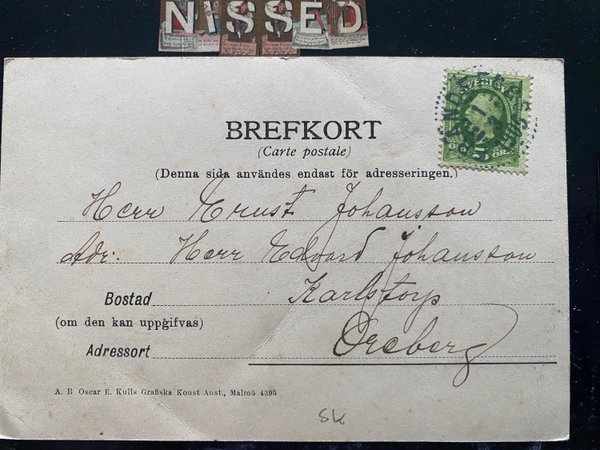 NISSED
BREFKORT
(Carte postale)
(Denna sida användes endast för adresseringen.)
Herr Ernst Johansson
Adr. Herr Edvard Johansson
Bostad Karlstorp
(om den kan uppgifvas)
Adressort Öreberg
A. B Oscar E. Kulls Grafiska Konst-Anst., Malmö 4395
SK
5